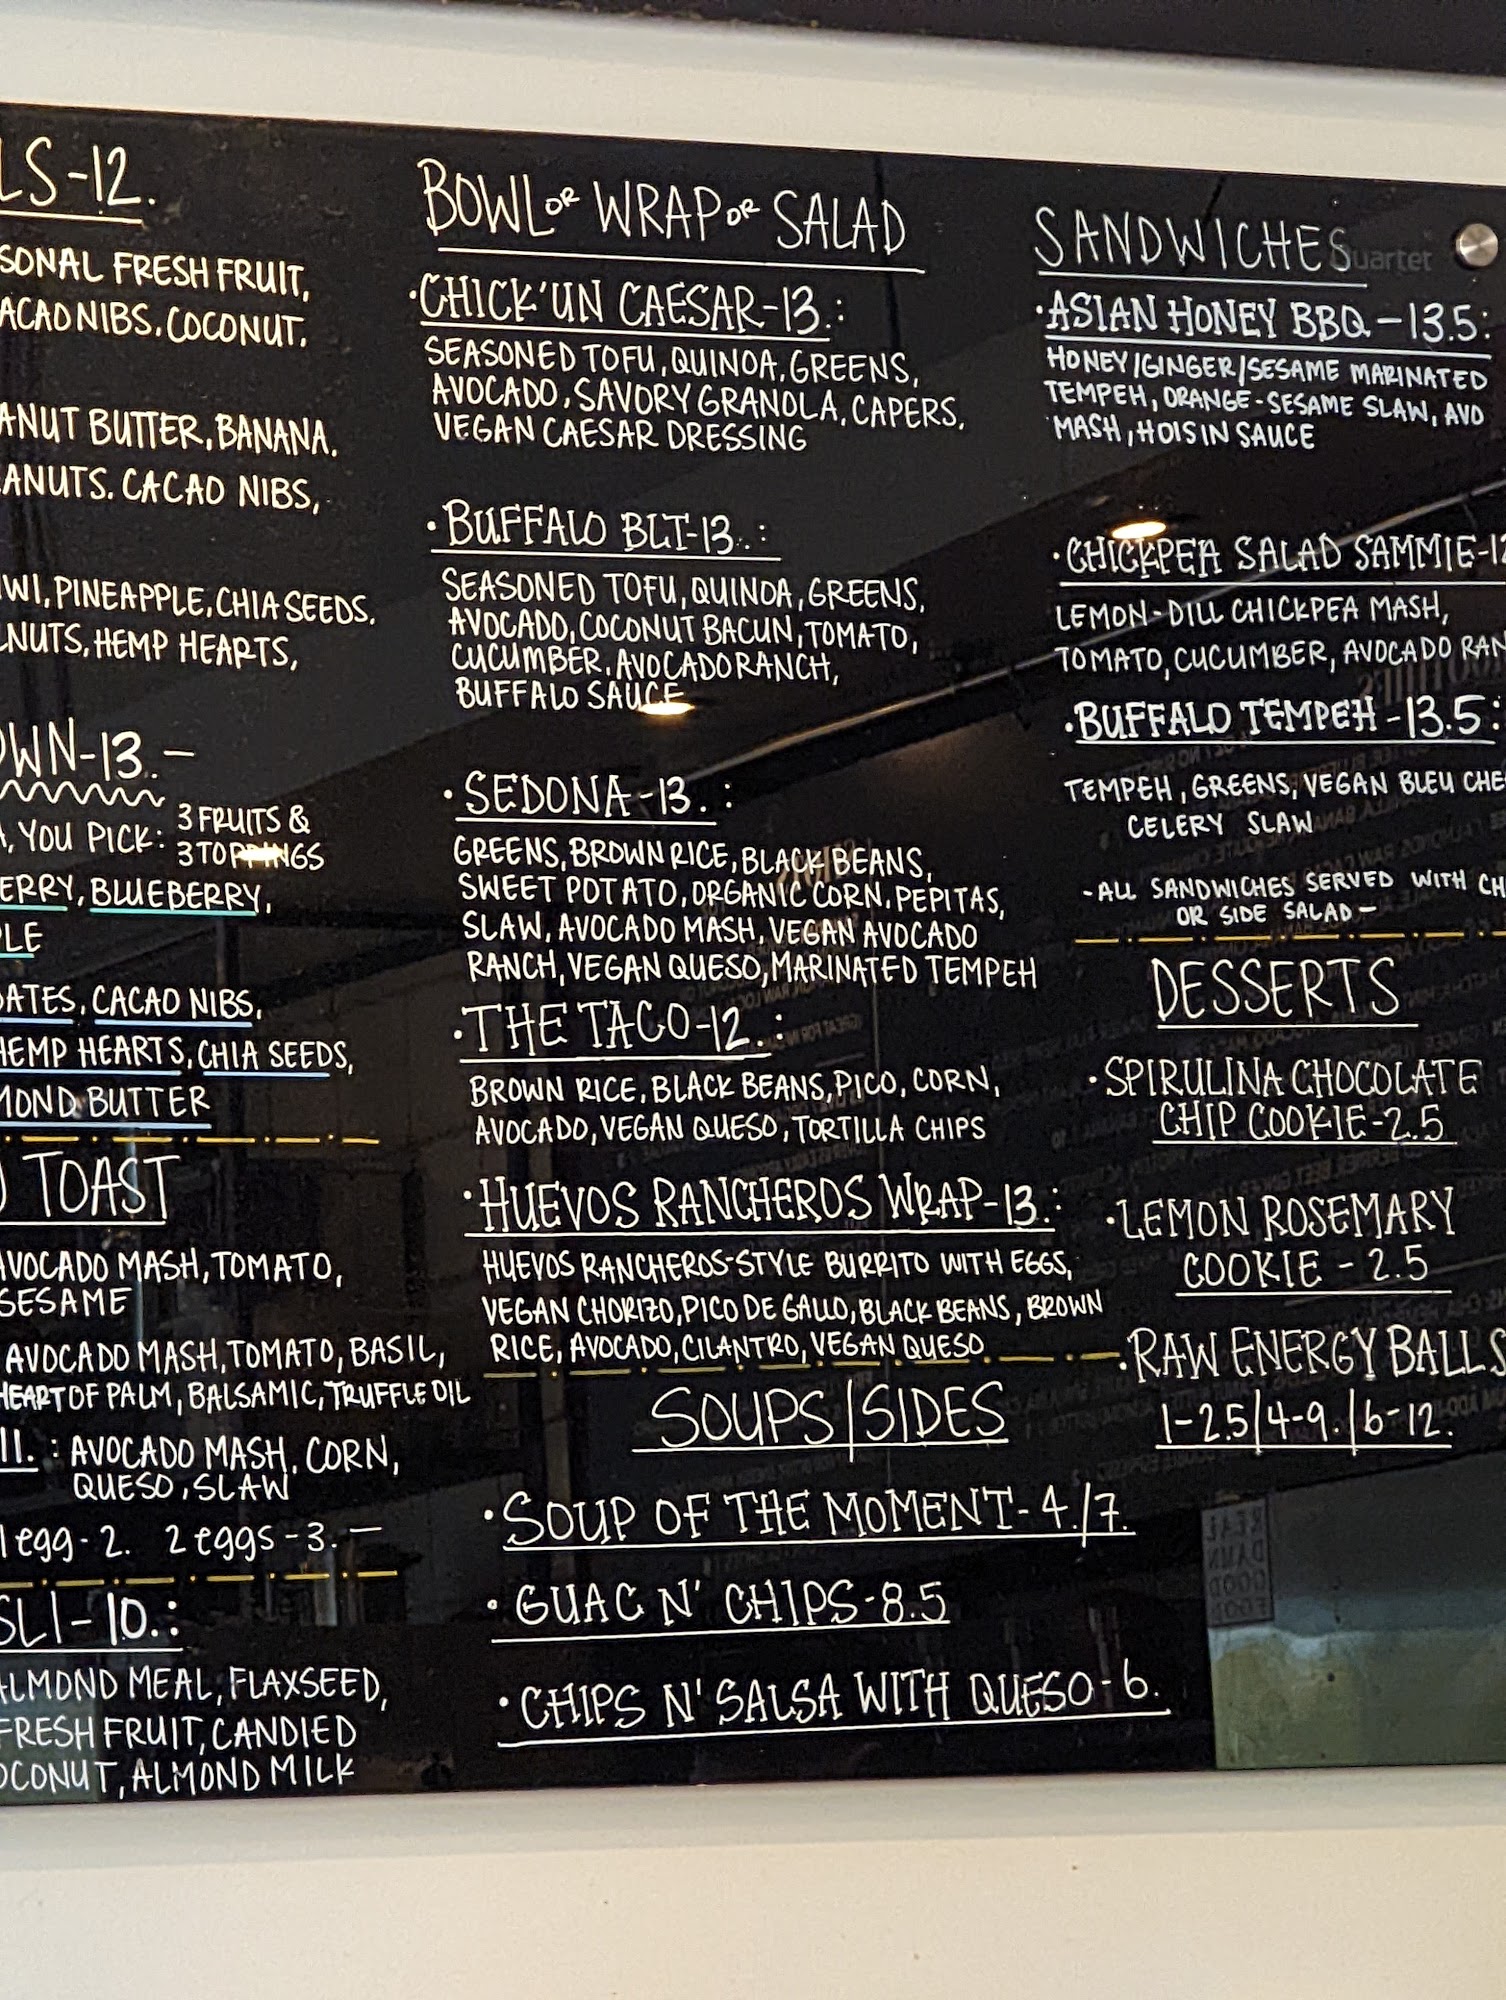 LS-12.
SONAL FRESH FRUIT,
ACAO NIBS, COCONUT,
ANUT BUTTER, BANANA,
ANUTS, CACAO NIBS,
WI, PINEAPPLE, CHIA SEEDS,
LNUTS, HEMP HEARTS,
OWN-13.-
, YOU PICK: 3 FRUITS &
3 TOPPINGS
ERRY, BLUEBERRY,
PLE
DATES, CACAO NIBS,
HEMP HEARTS, CHIA SEEDS,
MOND BUTTER
TOAST
AVOCADO MASH, TOMATO,
SESAME
AVOCADO MASH, TOMATO, BASIL,
HEART OF PALM, BALSAMIC, TRUFFLE OIL
11. : AVOCADO MASH, CORN,
QUESO, SLAW
1 egg-2. 2 eggs-3.-
SLI-10.:
ALMOND MEAL, FLAXSEED,
FRESH FRUIT, CANDIED
OCONUT, ALMOND MILK
BOWL OR WRAP OR SALAD
·CHICK'UN CAESAR-13.:
SEASONED TOFU, QUINOA, GREENS,
AVOCADO, SAVORY GRANOLA, CAPERS,
VEGAN CAESAR DRESSING
·BUFFALO BLT-13.:
SEASONED TOFU, QUINOA, GREENS,
AVOCADO, COCONUT BACUN, TOMATO,
CUCUMBER, AVOCADO RANCH,
BUFFALO SAUCE
·SEDONA-13.:
GREENS, BROWN RICE, BLACK BEANS,
SWEET POTATO, ORGANIC CORN, PEPITAS,
SLAW, AVOCADO MASH, VEGAN AVOCADO
RANCH, VEGAN QUESO, MARINATED TEMPEH
·THE TACO-12.:
BROWN RICE, BLACK BEANS, PICO, CORN,
AVOCADO, VEGAN QUESO, TORTILLA CHIPS
·HUEVOS RANCHEROS WRAP-13.:
HUEVOS RANCHEROS-STYLE BURRITO WITH EGGS,
VEGAN CHORIZO, PICO DE GALLO, BLACK BEANS, BROWN
RICE, AVOCADO, CILANTRO, VEGAN QUESO
SOUPS/SIDES
·SOUP OF THE MOMENT-4./7.
·GUAC N' CHIPS-8.5
·CHIPS N' SALSA WITH QUESO-6.
SANDWICHES
Quartet
·ASIAN HONEY BBQ-13.5:
HONEY/GINGER/SESAME MARINATED
TEMPEH, ORANGE-SESAME SLAW, AVO
MASH, HOISIN SAUCE
·CHICKPEA SALAD SAMMIE-12
LEMON-DILL CHICKPEA MASH,
TOMATO, CUCUMBER, AVOCADO RAN
·BUFFALO TEMPEH-13.5:
TEMPEH, GREENS, VEGAN BLEU CHE
CELERY SLAW
-ALL SANDWICHES SERVED WITH CH
OR SIDE SALAD-
DESSERTS
·SPIRULINA CHOCOLATE
CHIP COOKIE-2.5
·LEMON ROSEMARY
COOKIE-2.5
·RAW ENERGY BALLS
1-2.5/4-9./6-12.